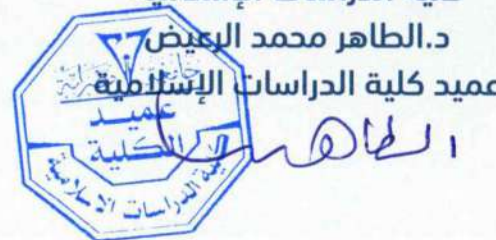 د.الطاهر محمد الرعيض
عميد كلية الدراسات الإسلامية
عميد
الكلية
الدراسات الإسلامية
الطاهر